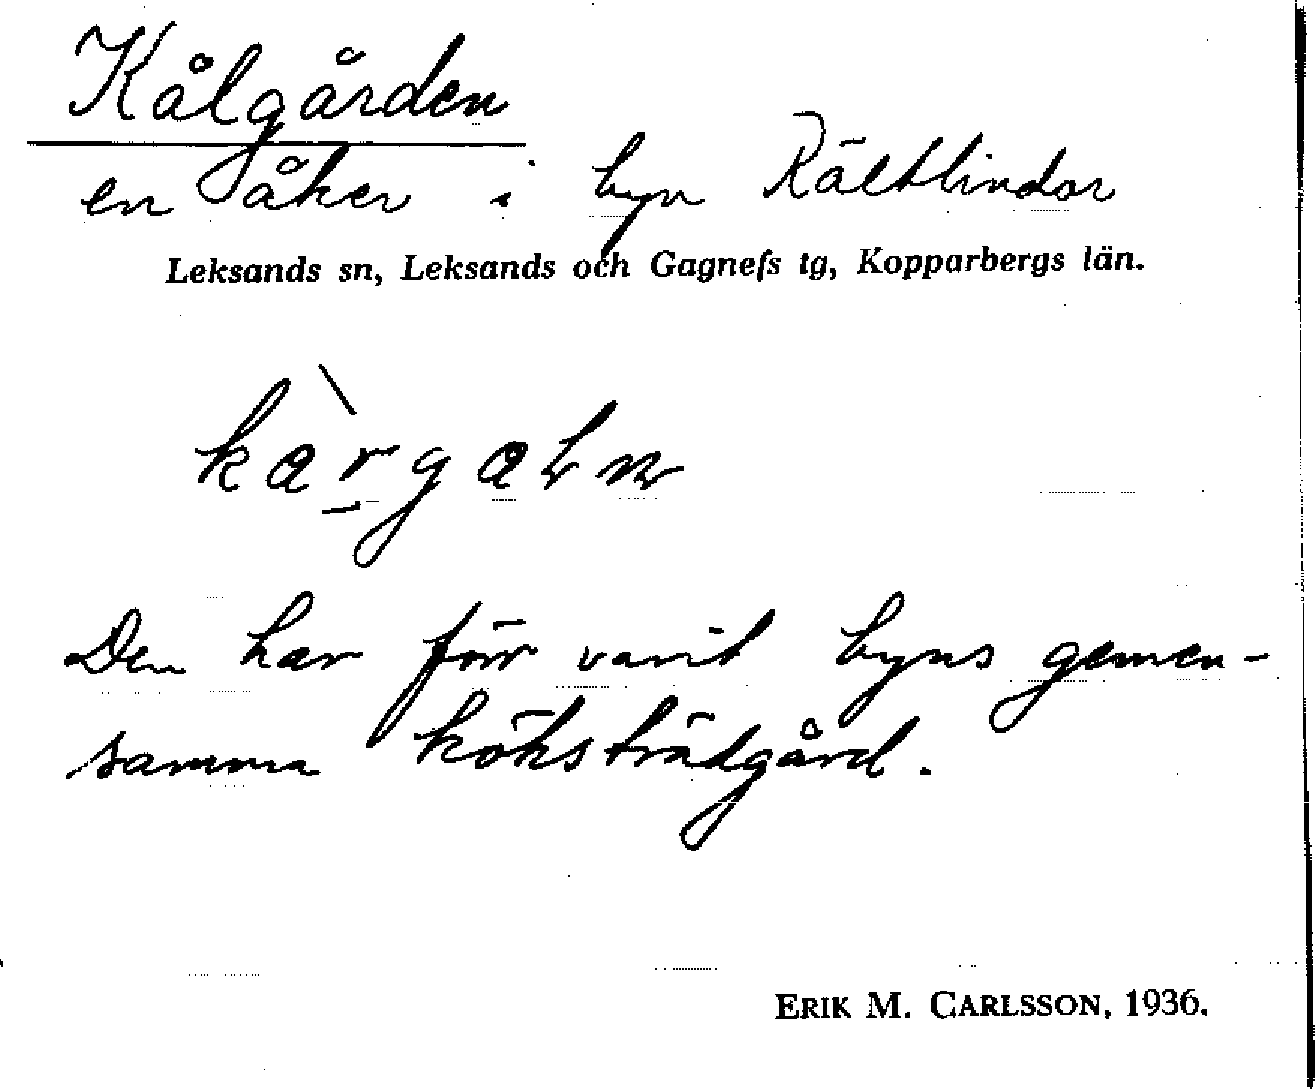 Kålgården
en åker i byn Rältlindor
Leksands sn, Leksands och Gagnefs tg, Kopparbergs län.
Den har förr varit byns gemen-
samma köksträdgård.
ERIK M. CARLSSON, 1936.